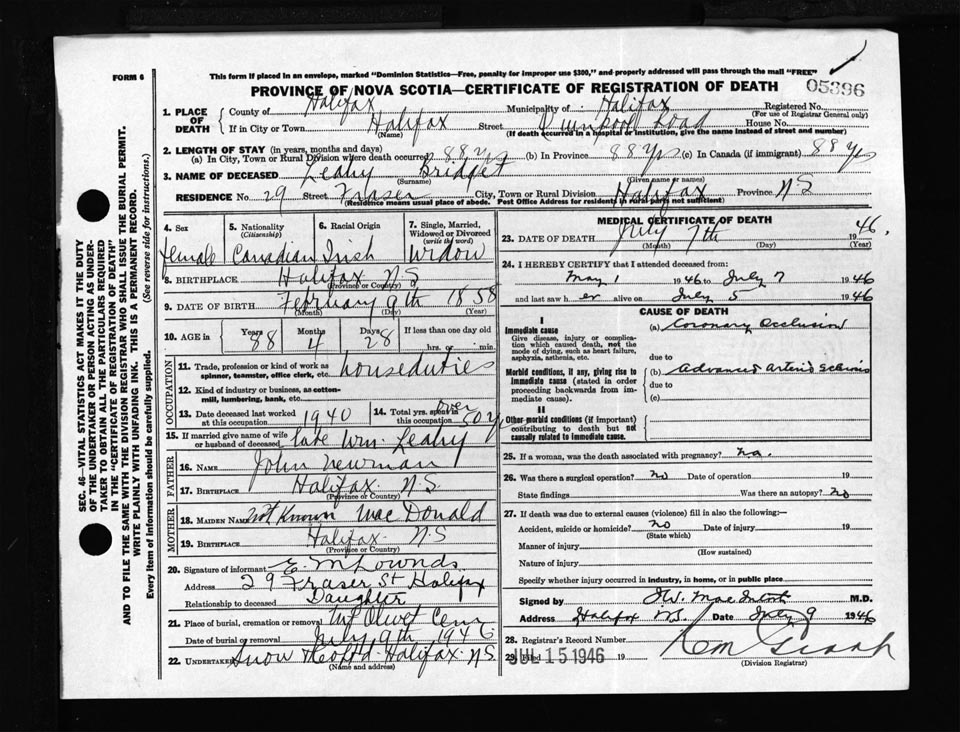 FORM 6
This form if placed in an envelope, marked "Dominion Statistics—Free, penalty for improper use $300," and properly addressed will pass through the mail "FREE"
05396
PROVINCE OF NOVA SCOTIA—CERTIFICATE OF REGISTRATION OF DEATH
1. PLACE OF DEATH
County of Halifax Municipality of Halifax Registered No.
(For use of Registrar General only)
If in City or Town Halifax Street Quinpool Road House No.
(Name) (If death occurred in a hospital or institution, give the name instead of street and number)
2. LENGTH OF STAY (in years, months and days)
(a) In City, Town or Rural Division where death occurred 88 yrs (b) In Province 88 yrs (c) In Canada (if immigrant) 88 yrs
3. NAME OF DECEASED Leahy Bridget
(Surname) (Given name or names)
RESIDENCE No. 29 Street Fraser City, Town or Rural Division Halifax Province N.S
(Residence means usual place of abode. Post Office Address for residents in rural parts not sufficient)
4. Sex 5. Nationality (Citizenship) 6. Racial Origin 7. Single, Married, Widowed or Divorced (write the word)
female Canadian Irish Widow
8. BIRTHPLACE Halifax N S
(Province or Country)
9. DATE OF BIRTH February 9th 1858
(Month) (Day) (Year)
10. AGE in Years 88 Months 4 Days 28 If less than one day old
hrs. or min.
OCCUPATION
11. Trade, profession or kind of work as spinner, teamster, office clerk, etc. houseduties
12. Kind of industry or business, as cotton-mill, lumbering, bank, etc.
13. Date deceased last worked at this occupation 1940 14. Total yrs. spent in this occupation over
15. If married give name of wife or husband of deceased late Wm. Leahy
FATHER
16. NAME John Newman
17. BIRTHPLACE Halifax N.S.
(Province or Country)
MOTHER
18. MAIDEN NAME Not Known Mac Donald
19. BIRTHPLACE Halifax N.S
(Province or Country)
20. Signature of informant E. M Lownds
Address 29 Fraser St Halifax
Relationship to deceased Daughter
21. Place of burial, cremation or removal Mt Olivet Cem
Date of burial or removal July 9th 1946
22. Undertaker Snow & Co Ltd Halifax N.S.
(Name and address)
MEDICAL CERTIFICATE OF DEATH
23. DATE OF DEATH July 7th 1946.
(Month) (Day) (Year)
24. I HEREBY CERTIFY that I attended deceased from:
May 1 1946 to July 7 1946
and last saw her alive on July 5 1946
CAUSE OF DEATH
I
Immediate cause (a) Coronary Occlusion
Give disease, injury or complication which caused death, not the mode of dying, such as heart failure, asphyxia, asthenia, etc.
due to
Morbid conditions, if any, giving rise to immediate cause (stated in order proceeding backwards from immediate cause). (b) Advanced Arterio Sclerosis
due to
(c)
II
Other morbid conditions (if important) contributing to death but not causally related to immediate cause.
25. If a woman, was the death associated with pregnancy? no.
26. Was there a surgical operation? no Date of operation 19
State findings Was there an autopsy? no
27. If death was due to external causes (violence) fill in also the following:—
Accident, suicide or homicide? no Date of injury 19
(State which)
Manner of injury
(How sustained)
Nature of injury
Specify whether injury occurred in industry, in home, or in public place
Signed by J.W. MacIntosh M.D.
Address Halifax N.S. Date July 9 1946
28. Registrar's Record Number
29. Filed JUL 15 1946 19
(Division Registrar)
SEC. 46—VITAL STATISTICS ACT MAKES IT THE DUTY
OF THE UNDERTAKER OR PERSON ACTING AS UNDER-
TAKER TO OBTAIN ALL THE PARTICULARS REQUIRED
IN THE "CERTIFICATE OF REGISTRATION OF DEATH"
AND TO FILE THE SAME WITH THE DIVISION REGISTRAR WHO SHALL ISSUE THE BURIAL PERMIT.
WRITE PLAINLY WITH UNFADING INK. THIS IS A PERMANENT RECORD.
Every item of information should be carefully supplied. (See reverse side for instructions.)